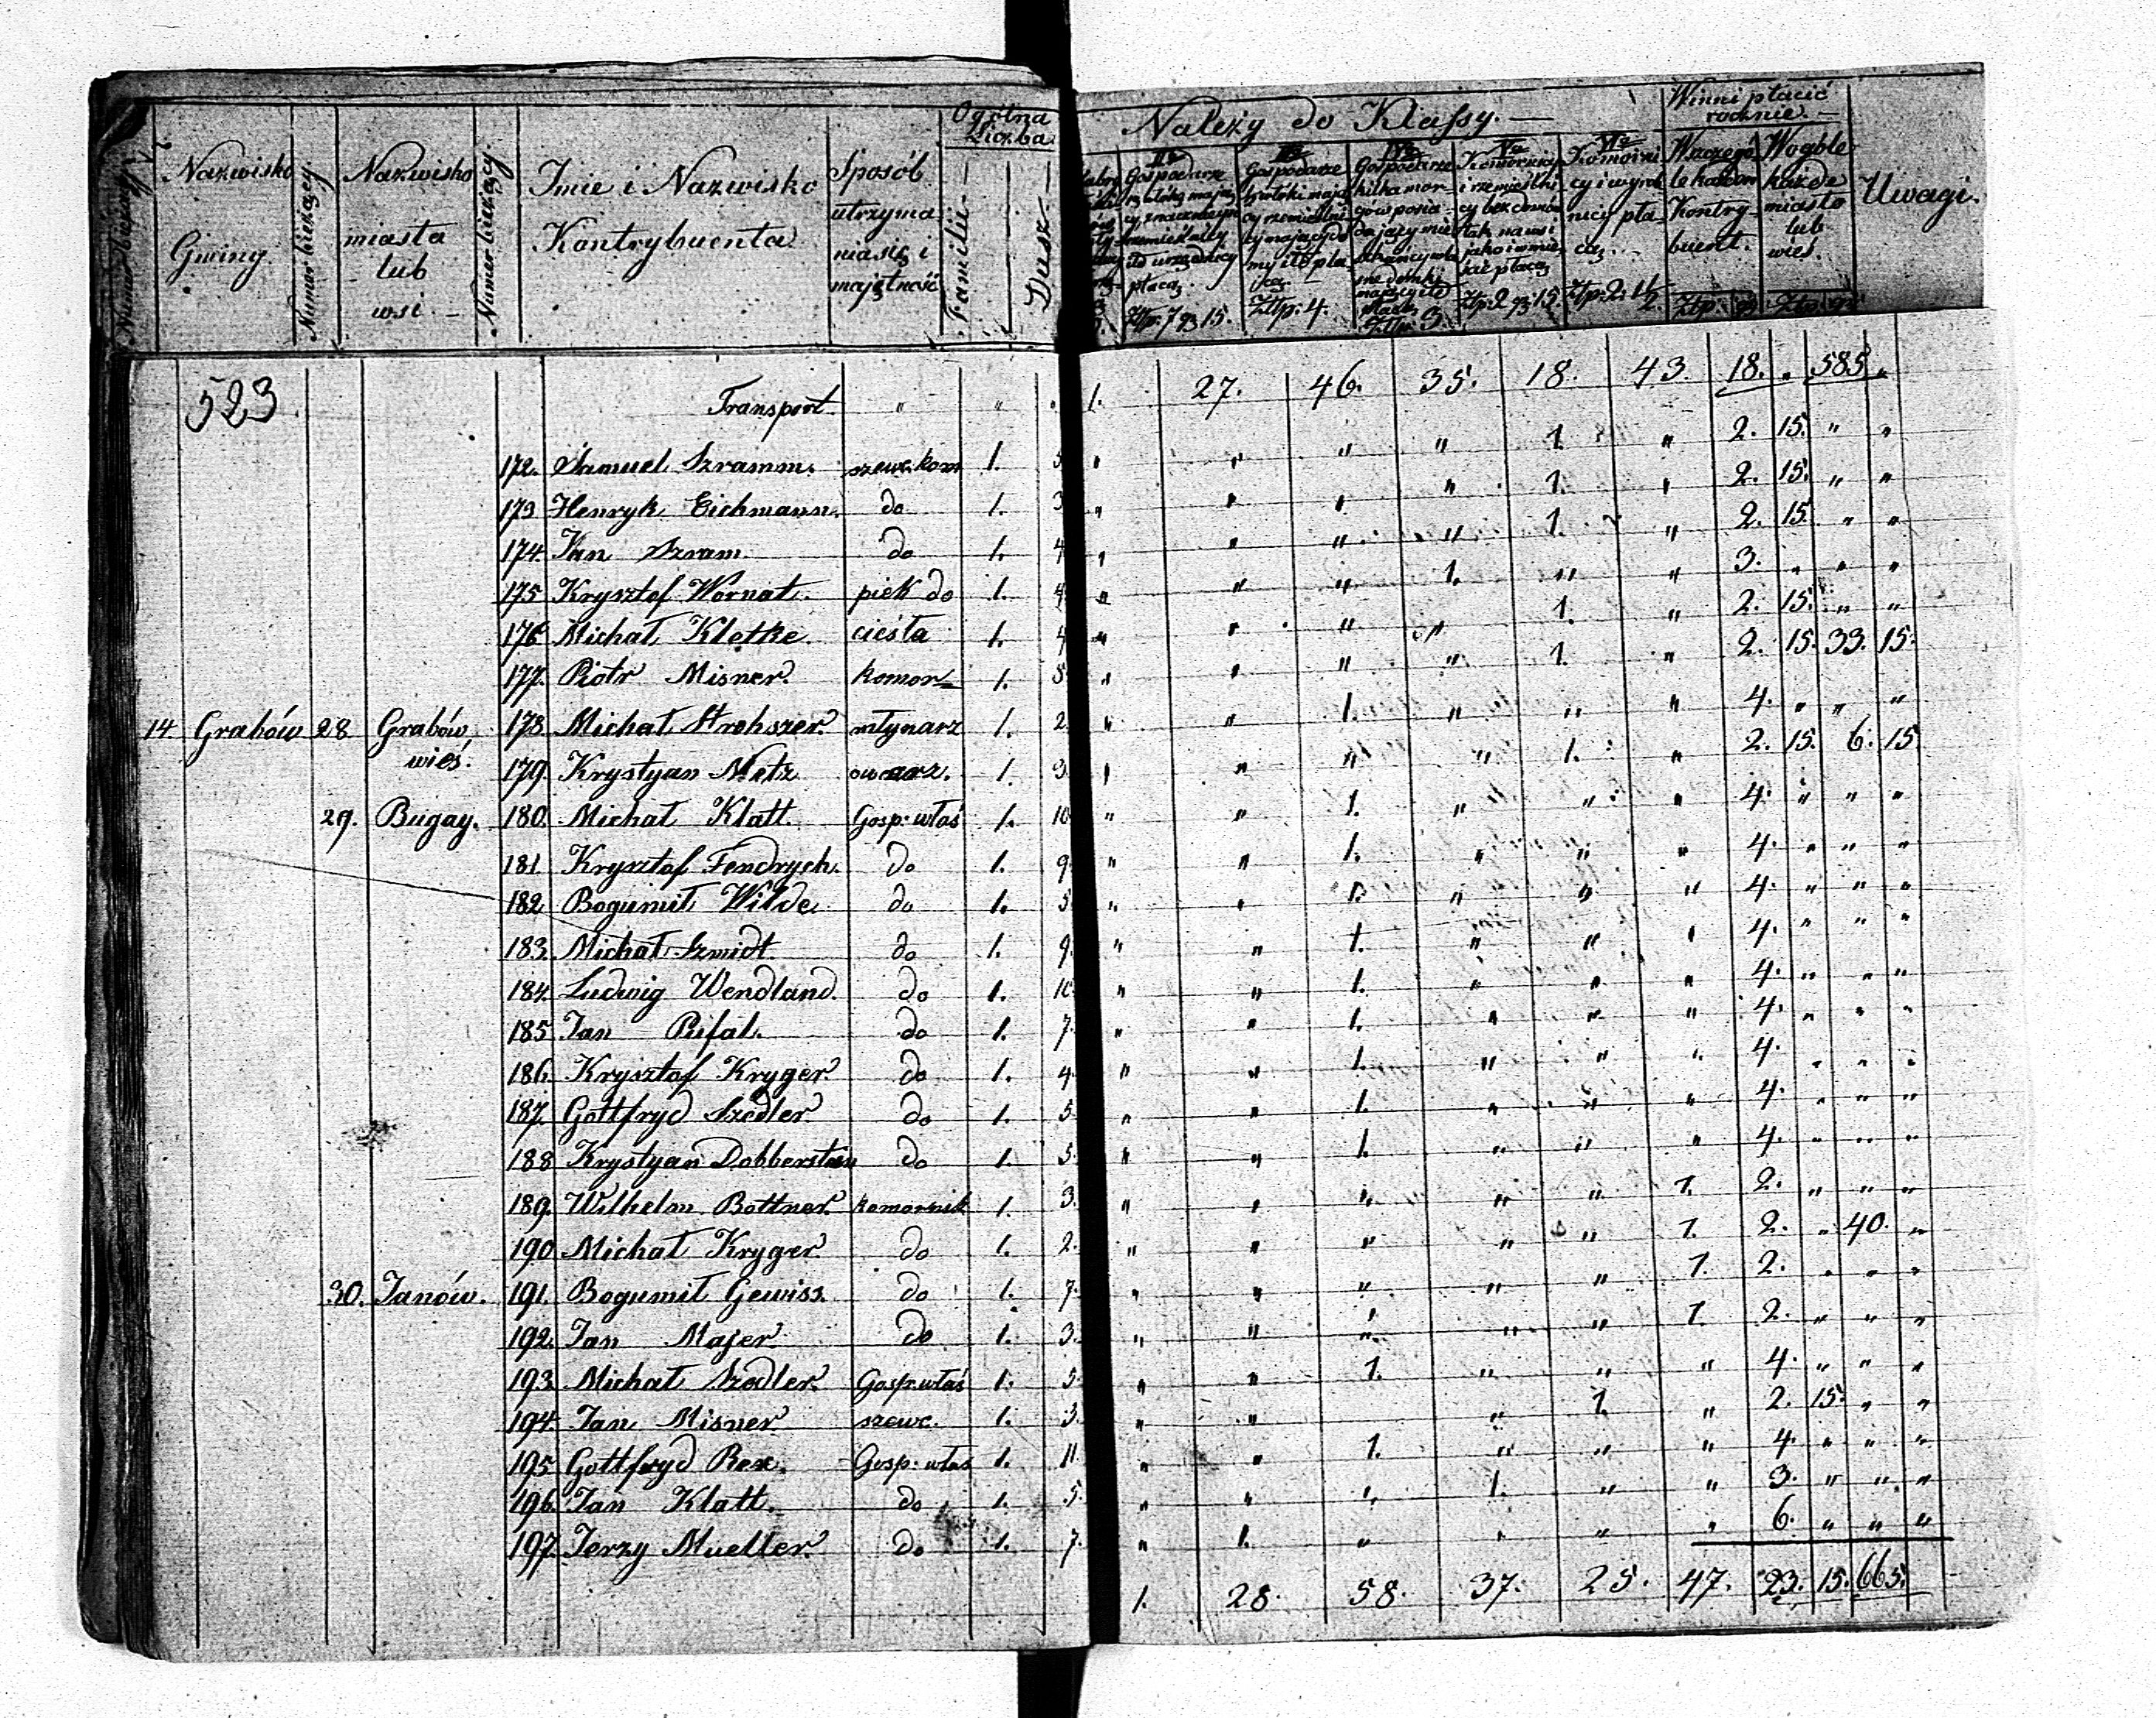 Numer bieżący
Nazwisko Gminy.
Numer bieżący.
Nazwisko miasta lub wsi.
Numer bieżący.
Imie i Nazwisko Kontrybuenta
Sposób utrzymania się i majętność
Ogólna Liczba
Familii
Dusz
Należy do Klassy.
Winni płacić rocznie.
IIa Gospodarze
płacą. Złtp: 7 gr 15.
Gospodarze
Złtp: 4.
IVa Gospodarze kilka mor-
Złtp: 3.
Va Komornicy i rzemieślni-
cy bez domów tak na wsi jako i w mie-
ście płacą Złp: 2 gr: 15
VIa Komorni-
cy i wyrob-
nicy pła-
cą. Złp: 2.
Wszczegó-
le każden Kontry-
buent.
Złp: gr
Wogóle każde miasto lub wieś.
Złp: gr
Uwagi.
523. Transport " " " 1. 27. 46. 35. 18. 43. 18. " 585 "
172. Samuel Szramm. szewc. kom 1. 5 " " " " 1. " 2. 15. " "
173 Henryk Eichmann. do 1. 3 " " " " 1. " 2. 15. " "
174. Jan Szram. do 1. 4 " " " " 1. " 2. 15. " "
175 Krysztof Wornat. piek do 1. 4 " " " 1. " " 3. " " "
176 Michał Kletke cieśla 1. 4 " " " " 1. " 2. 15. " "
177. Piotr Misner. komor 1. 5 " " " " 1. " 2. 15. 33. 15.
14 Grabów 28 Grabów wieś. 178 Michał Strohszer. młynarz 1. 2. " " 1. " " " 4. " " "
179. Krystyan Metz owcarz. 1. 3. " " " " 1. " 2. 15. 6. 15
29. Bugay. 180. Michał Klatt. Gosp: właś 1. 10 " " 1. " " " 4. " " "
181 Krysztof Fendrych. do 1. 9. " " 1. " " " 4. " " "
182 Bogumił Wilde do 1. 5 " " 1. " " " 4. " " "
183. Michał Szmidt. do 1. 9. " " 1. " " " 4. " " "
184. Ludwig Wendland. do 1. 10 " " 1. " " " 4. " " "
185 Jan Pufal. do 1. 7. " " 1. " " " 4. " " "
186. Krysztof Kryger. do 1. 4. " " 1. " " " 4. " " "
187. Gottfryd Szedler. do 1. 5. " " 1. " " " 4. " " "
188 Krystyan Dobberstein do 1. 5. " " 1. " " " 4. " " "
189. Wilhelm Bottner. komornik 1. 3. " " " " " 1. 2. " " "
190 Michał Kryger do 1. 2. " " " " " 1. 2. " 40. "
30. Janów. 191. Bogumił Gewiss. do 1. 7. " " " " " 1. 2. " " "
192. Jan Majer. do 1. 3. " " " " " 1. 2. " " "
193. Michał Szedler. Gosp: właś 1. 5. " " 1. " " " 4. " " "
194. Jan Misner. szewc. 1. 3. " " " 1. " 2. 15. " "
195 Gottfryd Rex. Gosp: właś 1. 11. " " 1. " " " 4. " " "
196. Jan Klatt. do 1. 5. " " " 1. " " 3. " " "
197. Jerzy Mueller. do 1. 7. " 1. " " " " 6. " " "
1. 28. 58. 37. 25. 47. 23. 15. 665.